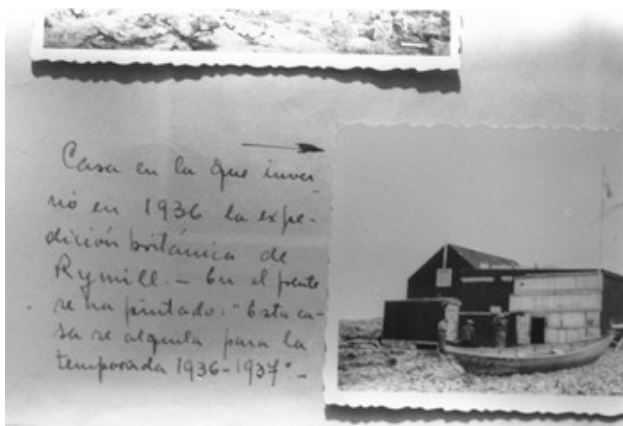 Casa en la que inver-
nó en 1936 la expe-
dición británica de
Rymill.— En el frente
se ha pintado: "Esta ca-
sa se alquila para la
temporada 1936-1937"—